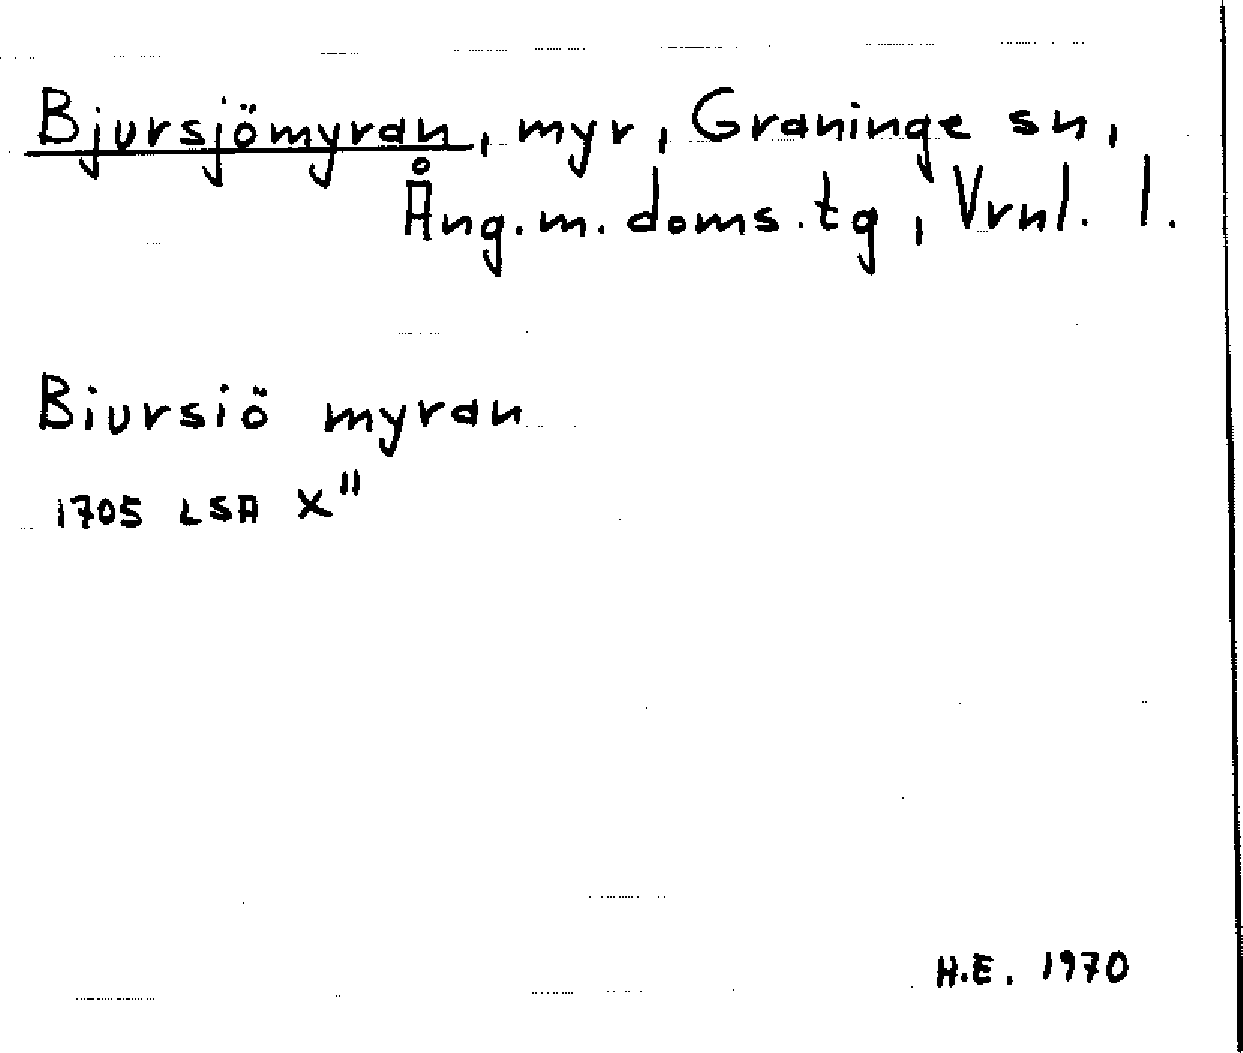 Bjursjömyran, myr, Graninge sn,
Ång.m.doms.tg, Vrnl. l.
Biursiö myran
1705 LSA X"
H.E. 1970